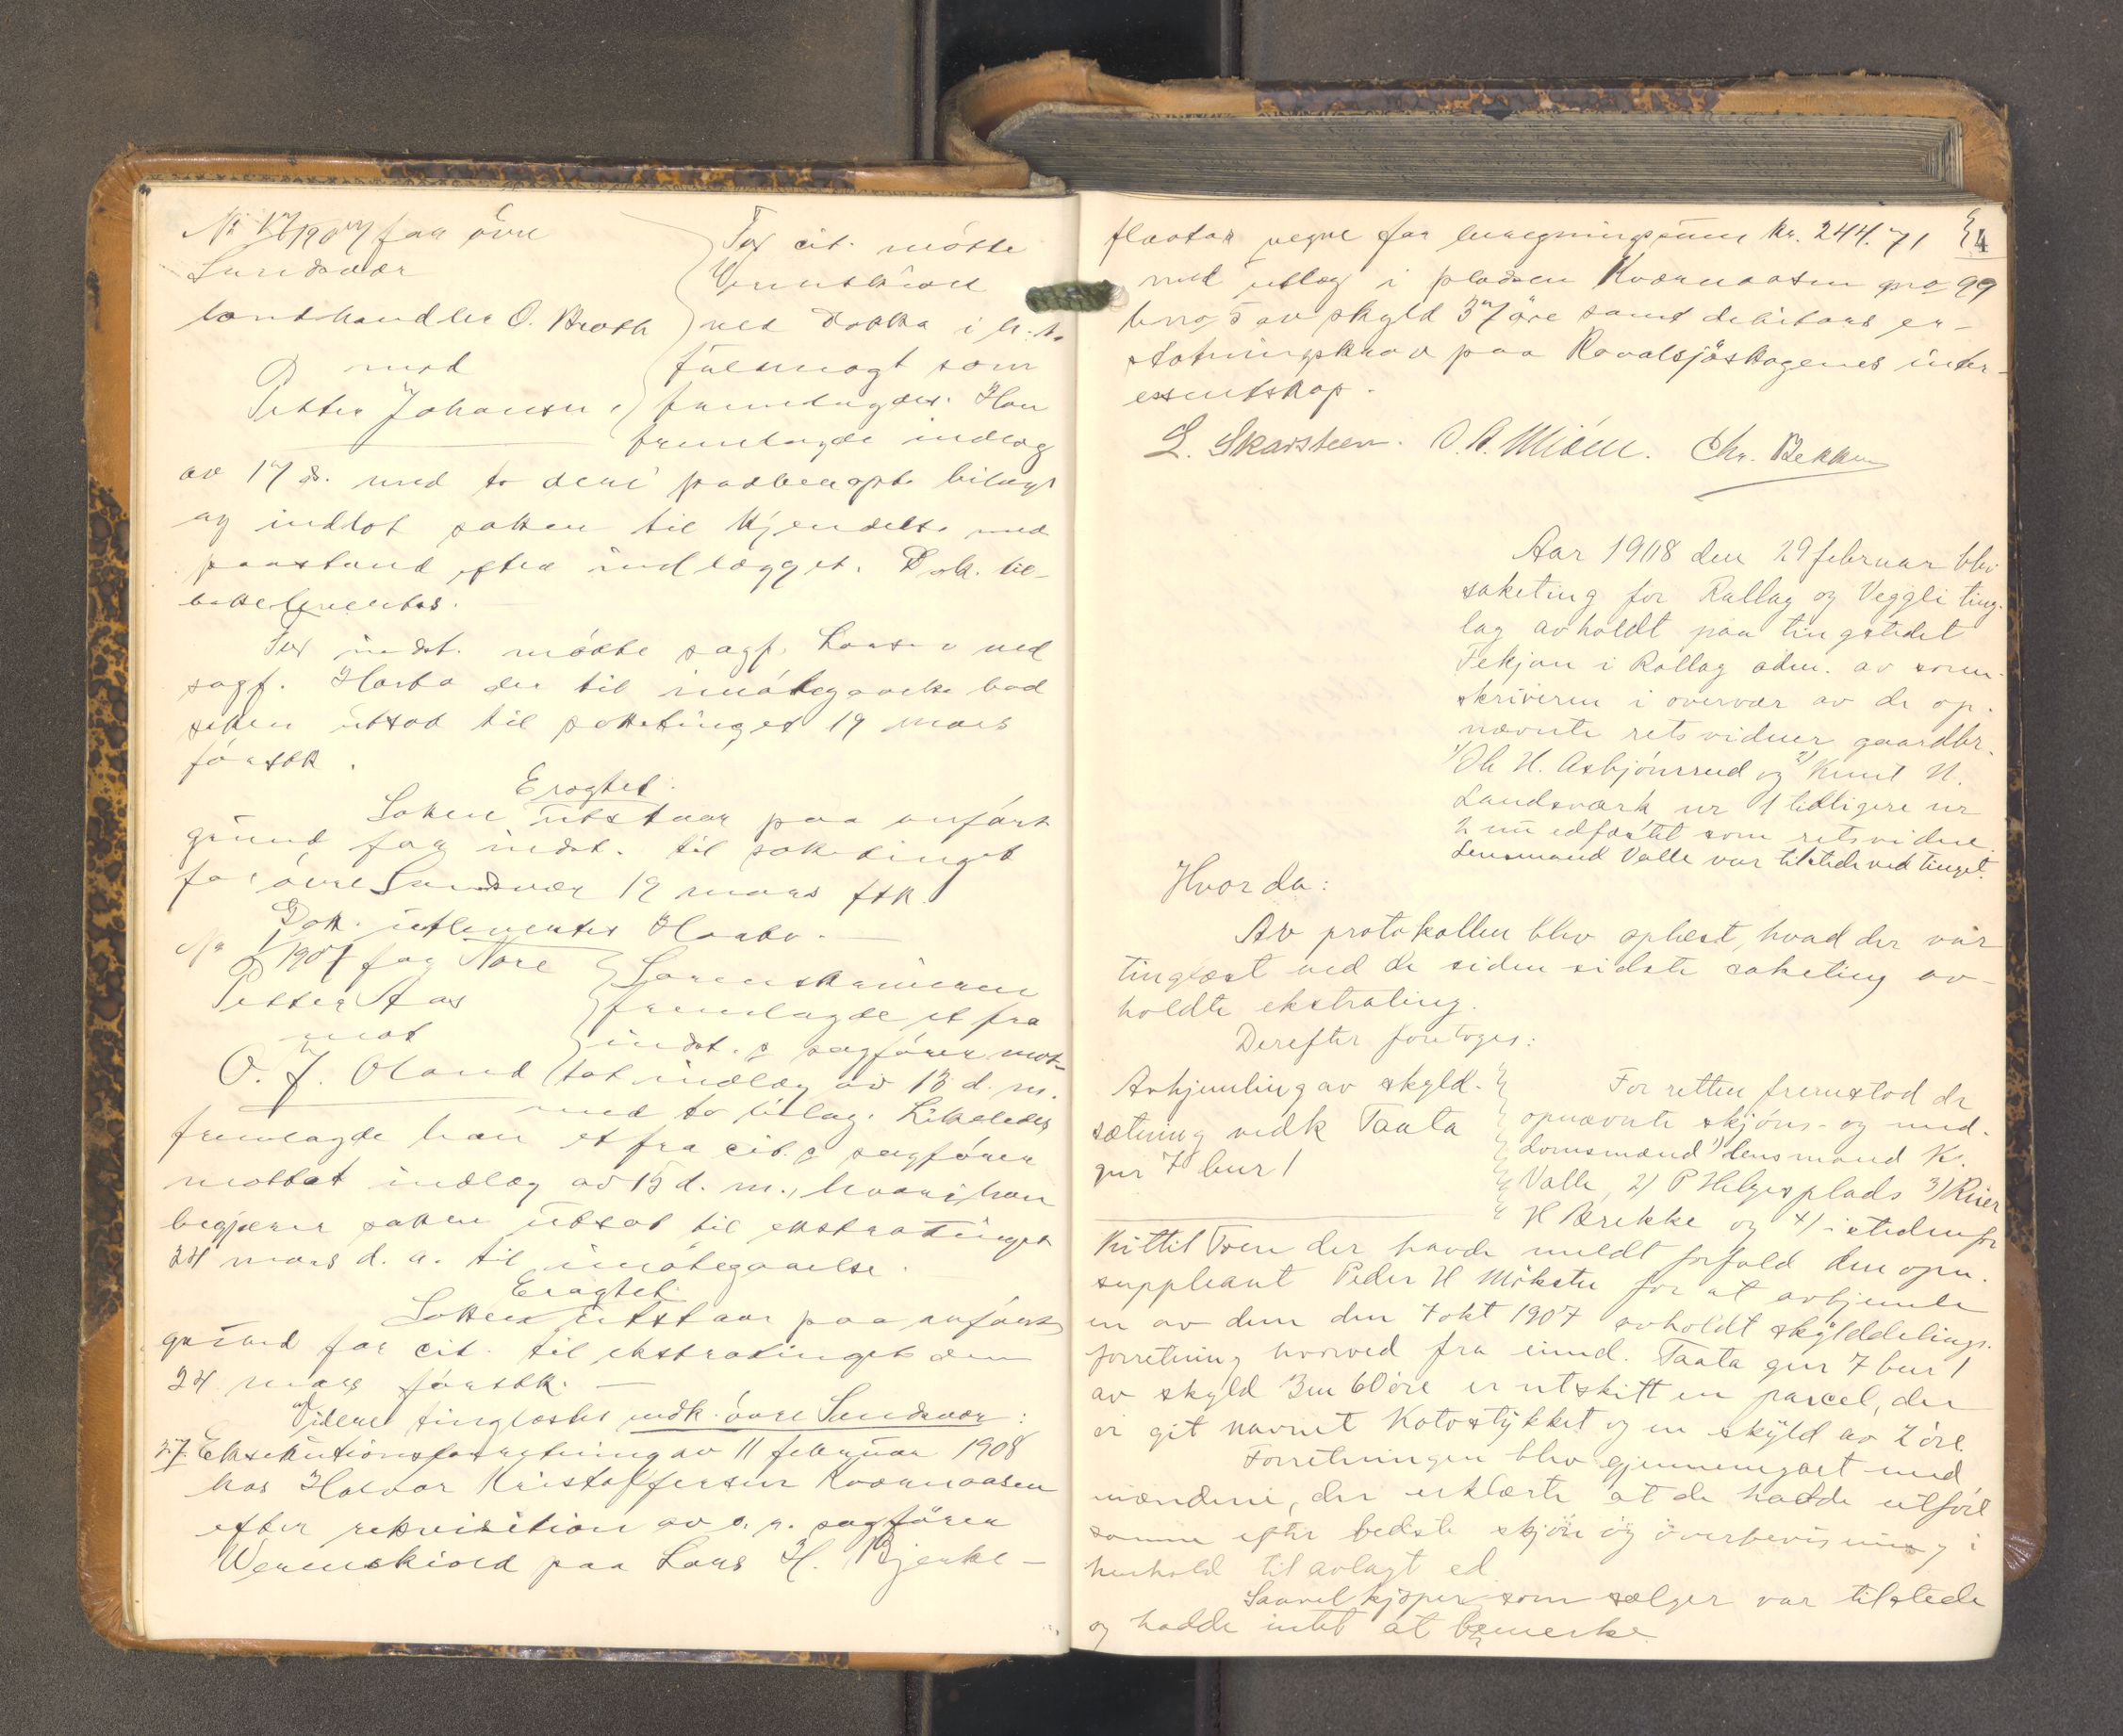 for øvre
Sandsvær
landhandler O.
mot
Petter Johansen.
For cit. mötte
Wennskiold
ved Dokka i h.t.
fuldmagt som
fremlagdes. Han
fremlagde indlæg
av 17 ds. med to deri paaberopte bilag
og indlot saken til kjendelse med
paastand efter indlægget. Dok. til-
bakeleveredes.
For indst. mötte sagf. Larsen ved
sagf. Haabo der til imötegaaelse bad
saken utsat til saketinget 19 mars
förstk.
Eragtet:
Saken utstaar paa anfört
grund for indst. til saketinget
for övre Sandsvær 19 mars fstk.
Dok. utleveredes Haabo.
No 1/1907 for Nore
Petter Aas
mot
O. J. Oland
Sorenskriveren
fremlagde et fra
indst.s sagförer mot-
tat indlæg av 13 d. m.
med to bilag. Likeledes
fremlagde han et fra cit.s sagförer
mottat indlæg av 15 d. m., hvori han
begjærer saken utsat til ekstratinget
24 mars d. a. til imötegaaelse.
Eragtet:
Saken utstaar paa anfört
grund for cit. til ekstratinget den
24 mars förstk.
Videre tinglæstes vedk. övre Sandsvær:
27. Eksekutionsforretning av 11 februar 1908
hos Halvor Kristoffersen Kværnaasen
efter rekvisition av o. r. sagförer
Wennskiold paa Lars H. Bjerke-
4
flaatas vegne for beregningssum kr. 244.71
med utlæg i pladsen Kværnaasen gno 99
bno 5 av skyld 37 öre samt debitors er-
statningskrav paa Ravalsjöskogenes inter-
essentskap.
L. Skarsteen. O. A. Moen. Chr. Bekken
Aar 1908 den 29 februar blev
saketing for Rollag og Veggli ting-
lag avholdt paa tingstedet
Tekjan i Rollag adm. av soren-
skriveren i overvær av de op-
nævnte retsvidner gaardbr.
1) Ole H. Asbjörnsrud og 2) Knut N.
Landsværk nr 1 tidligere nr
2 nu edfæstet som retsvidne.
Lensmand Valle var tilstede ved tinget.
Hvor da:
Av protokollen blev oplæst, hvad der var
tinglæst ved de siden sidste saketing av-
holdte ekstrating.
Derefter foretoges:
Avhjemling av skyld-
sætning vedk Taata
gnr 7 bnr 1
For retten fremstod de
opnævnte skjöns- og med-
domsmænd 1) lensmand K.
Valle, 2) P Helgesplads 3)
H Brekke og 4) istedenfor
Kittil Toen der havde meldt forfald den opn.
suppleant Peder H Mökstu for at avhjemle
en av dem den 7 okt 1907 avholdt skylddelings-
forretning hvorved fra eiend. Taata gnr 7 bnr 1
av skyld 3 m 60 öre er utskilt en parcel, der
er git navnet Kotostykket og en skyld av 2 öre.
Forretningen blev gjennemgaat med
mændene, der erklærte at de hadde utfört
samme efter bedste skjön og overbevisning i
henhold til avlagt ed
Saavel kjöper som sælger var tilstede
og hadde intet at bemerke.